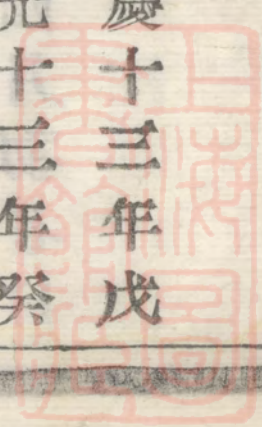 慶十三年戊
光十三年癸
上海圖
書館藏